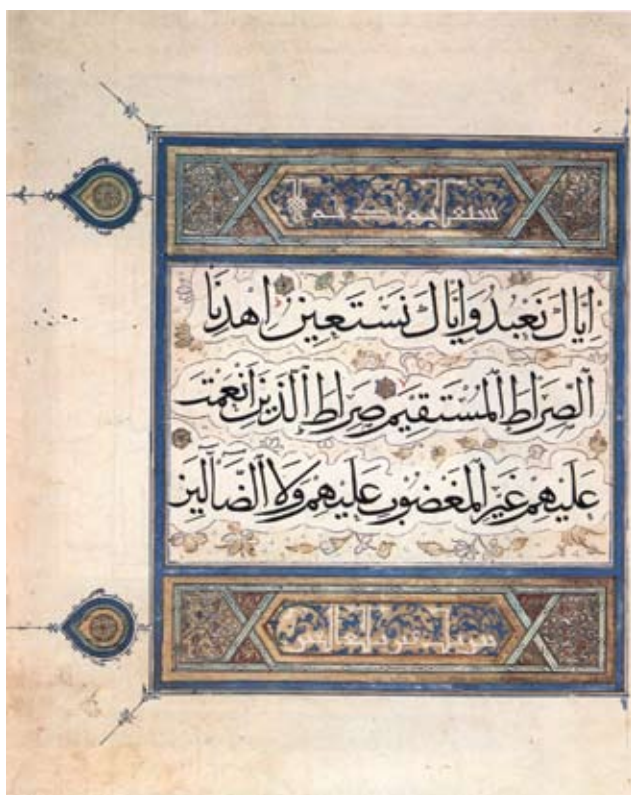 اِيَّاكَ نَعْبُدُ وَاِيَّاكَ نَسْتَعِينُ اِهْدِنَا
الصِّرَاطَ الْمُسْتَقِيمَ صِرَاطَ الَّذِينَ اَنْعَمْتَ
عَلَيْهِمْ غَيْرِ الْمَغْضُوبِ عَلَيْهِمْ وَلَا الضَّآلِّينَ